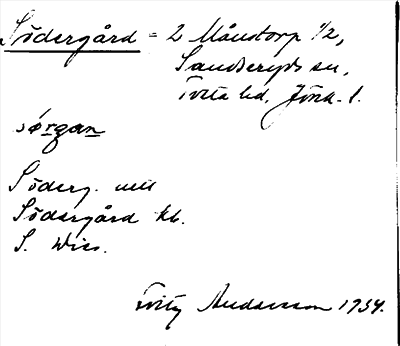 Södergård = 2 Månstorp 1/2,
Sandseryds sn,
Tveta hd, Jönk. l.
sørgan
Söderg. utt
Södergård kb.
S. Wies.
Andersson 1934.